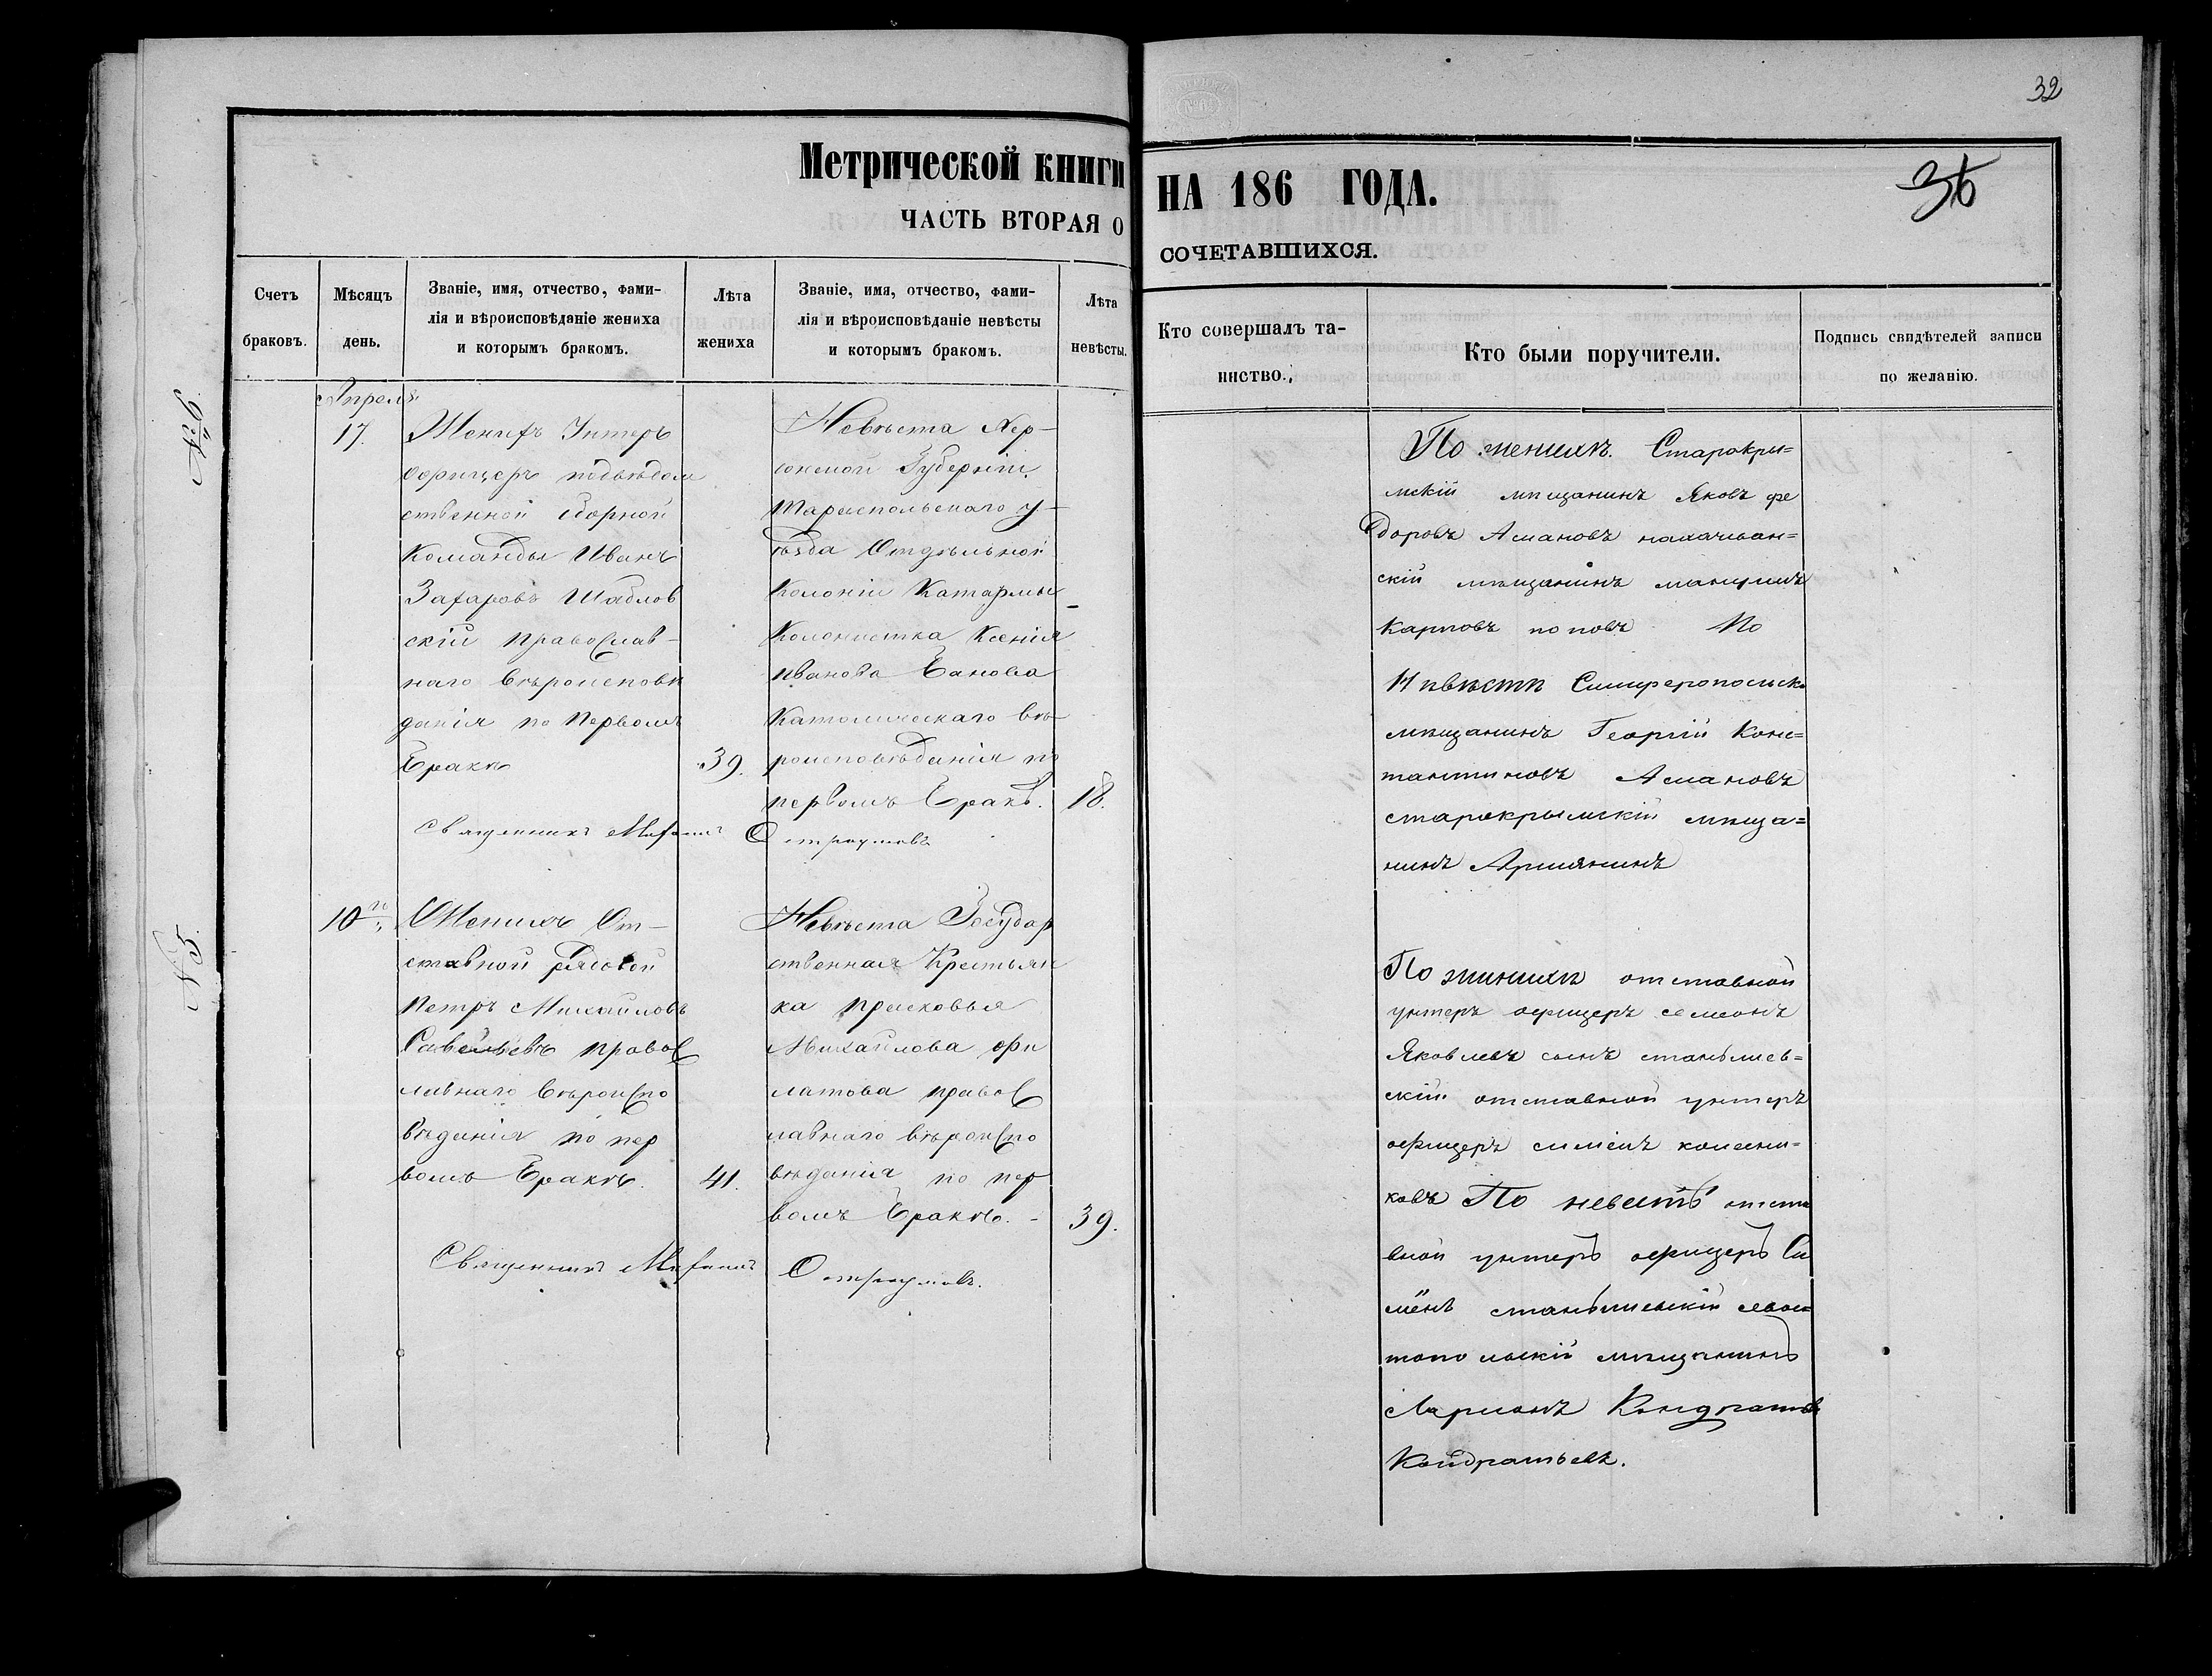 32
36
Метрической книги НА 186 ГОДА.
ЧАСТЬ ВТОРАЯ О СОЧЕТАВШИХСЯ.
Счетъ браковъ.
Мѣсяцъ день.
Званіе, имя, отчество, фами-
лія и вѣроисповѣданіе жениха
и которымъ бракомъ.
Лѣта жениха
Званіе, имя, отчество, фами-
лія и вѣроисповѣданіе невѣсты
и которымъ бракомъ.
Лѣта невѣсты.
Кто совершалъ та-
инство.
Кто были поручители.
Подпись свидѣтелей записи
по желанію.
№ 6.
Апреля
17.
Женихъ Унтеръ
офицеръ
ственной сборной
Команды Иванъ
Захаровъ Шаблов
скій Православ-
наго Вѣроисповѣ
данія по Первомъ
Бракѣ
39.
Невѣста Хер-
сонской Губерніи
Тараспольскаго у-
ѣзда Отдѣльной
Колоніи Катаржы
Колонистка Ксенія
Иванова Банова
Католическаго вѣ-
роисповѣданія по
первомъ Бракѣ.
18.
Священникъ Остроумовъ
По женихѣ. Старокры=
мскій мѣщанинъ Яковъ Фе
доровъ Асмановъ нахачиван=
скій мѣщанинъ
Карповъ поповъ По
Нѣвѣстѣ Симферопольск
мѣщанинъ Георгій Конс=
тантиновъ Асмановъ
старокрымскій мѣща=
нинъ Армянинъ
№ 5.
10го
Женихъ От-
ставной рядовой
Петръ Михайловъ
Савельевъ право
славнаго Вѣроиспо
вѣданія по пер
вомъ Бракѣ.
41.
Невѣста Государ
ственная Крестьян
ка Присковья
Михайлова Фи
латова право
славнаго вѣроиспо
вѣданія по пер
вомъ Бракѣ. -
39.
Священникъ Остроумовъ.
По жинихѣ отставной
унтеръ офицеръ семеонъ
Яковлевъ сынъ станѣлиев=
скій отставной унтеръ
офицеръ симіенъ колесни=
ковъ По невестѣ отста
вной унтеръ офицеръ Си
мёнъ севас=
топольскій мѣщанинъ
Ларионъ Кондратьев
Кондратьевъ.